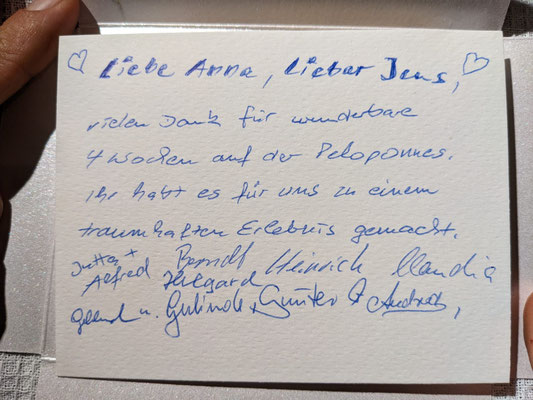 Liebe Anna, Lieber Jens,
vielen Dank für wunderbare
4 Wochen auf der Peloponnes.
Ihr habt es für uns zu einem
traumhaften Erlebnis gemacht.
Jutta + Berndt Heinrich Claudia
Alfred Helgard
u. Günter Andreas,